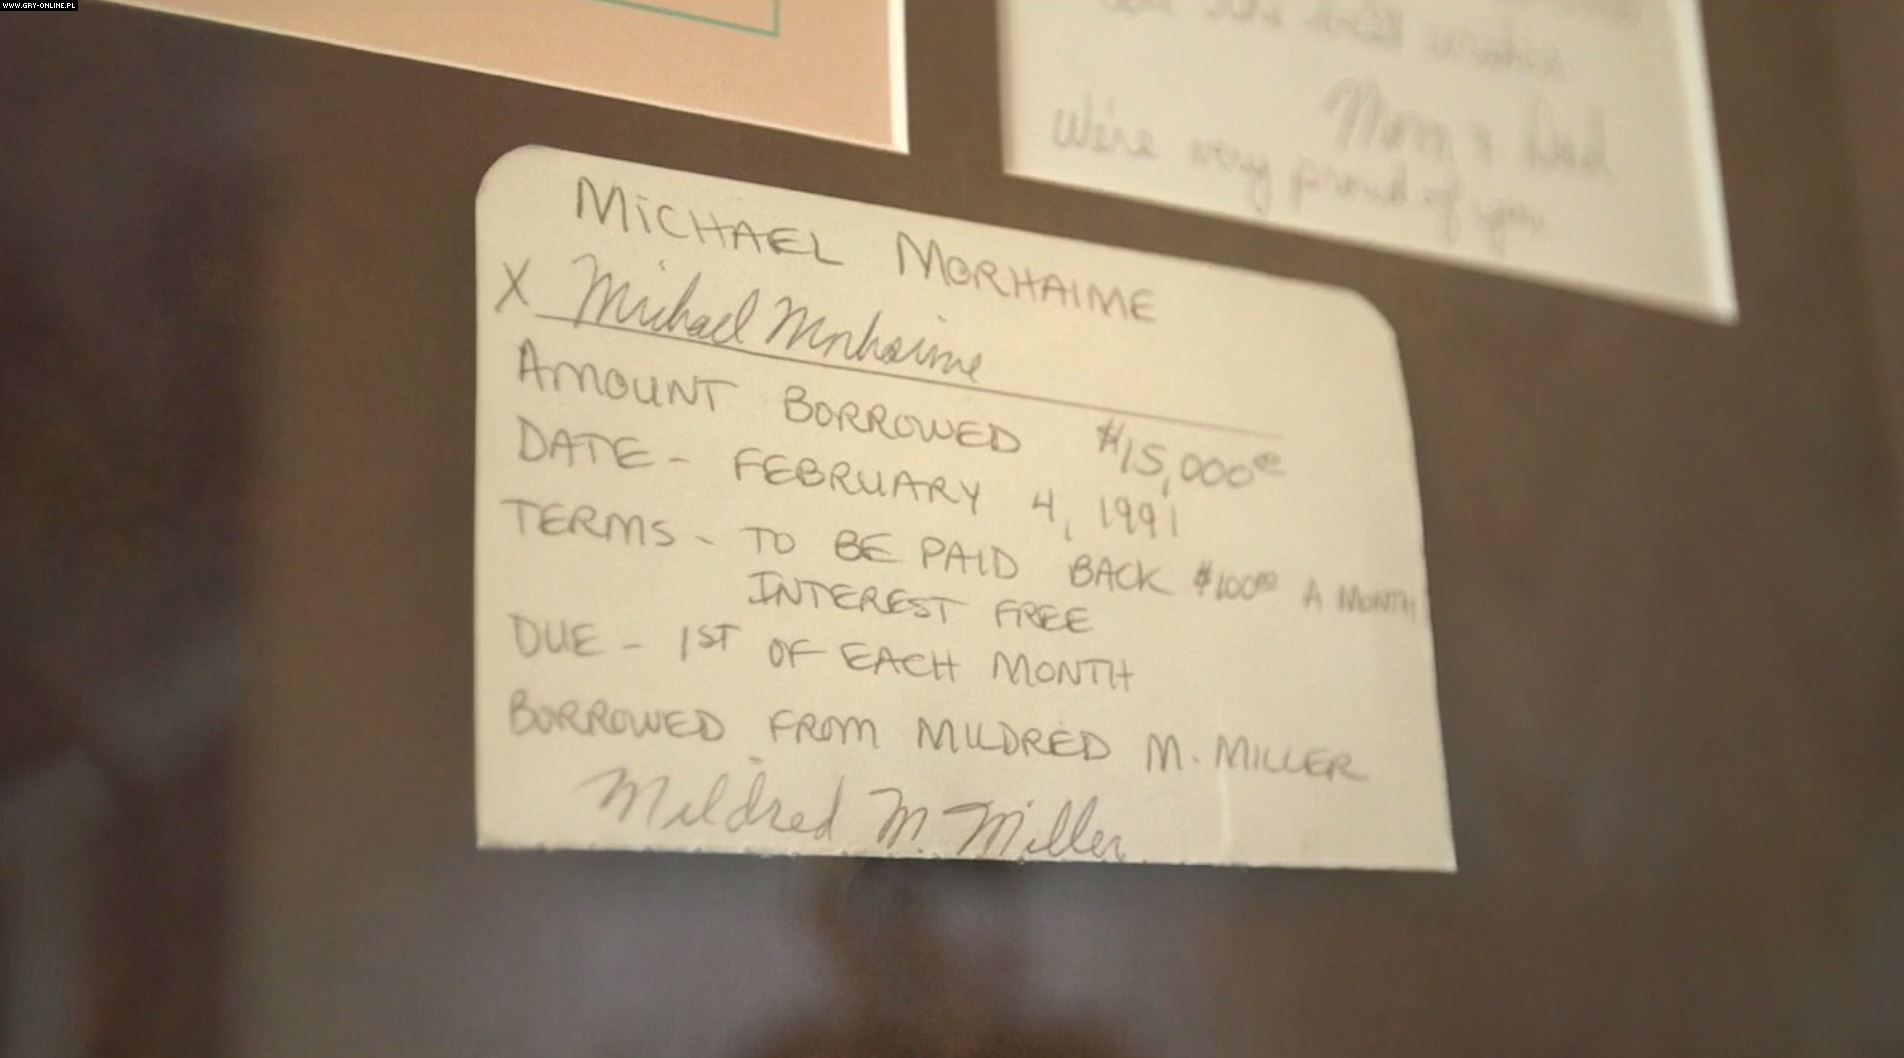 WWW.GRY-ONLINE.PL
Mom & Dad
We're very proud of you
MICHAEL MORHAIME
X Michael Morhaime
AMOUNT BORROWED $15,000⁰⁰
DATE - FEBRUARY 4, 1991
TERMS - TO BE PAID BACK $100⁰⁰ A MONTH
INTEREST FREE
DUE - 1ST OF EACH MONTH
BORROWED FROM MILDRED M. MILLER
Mildred M. Miller